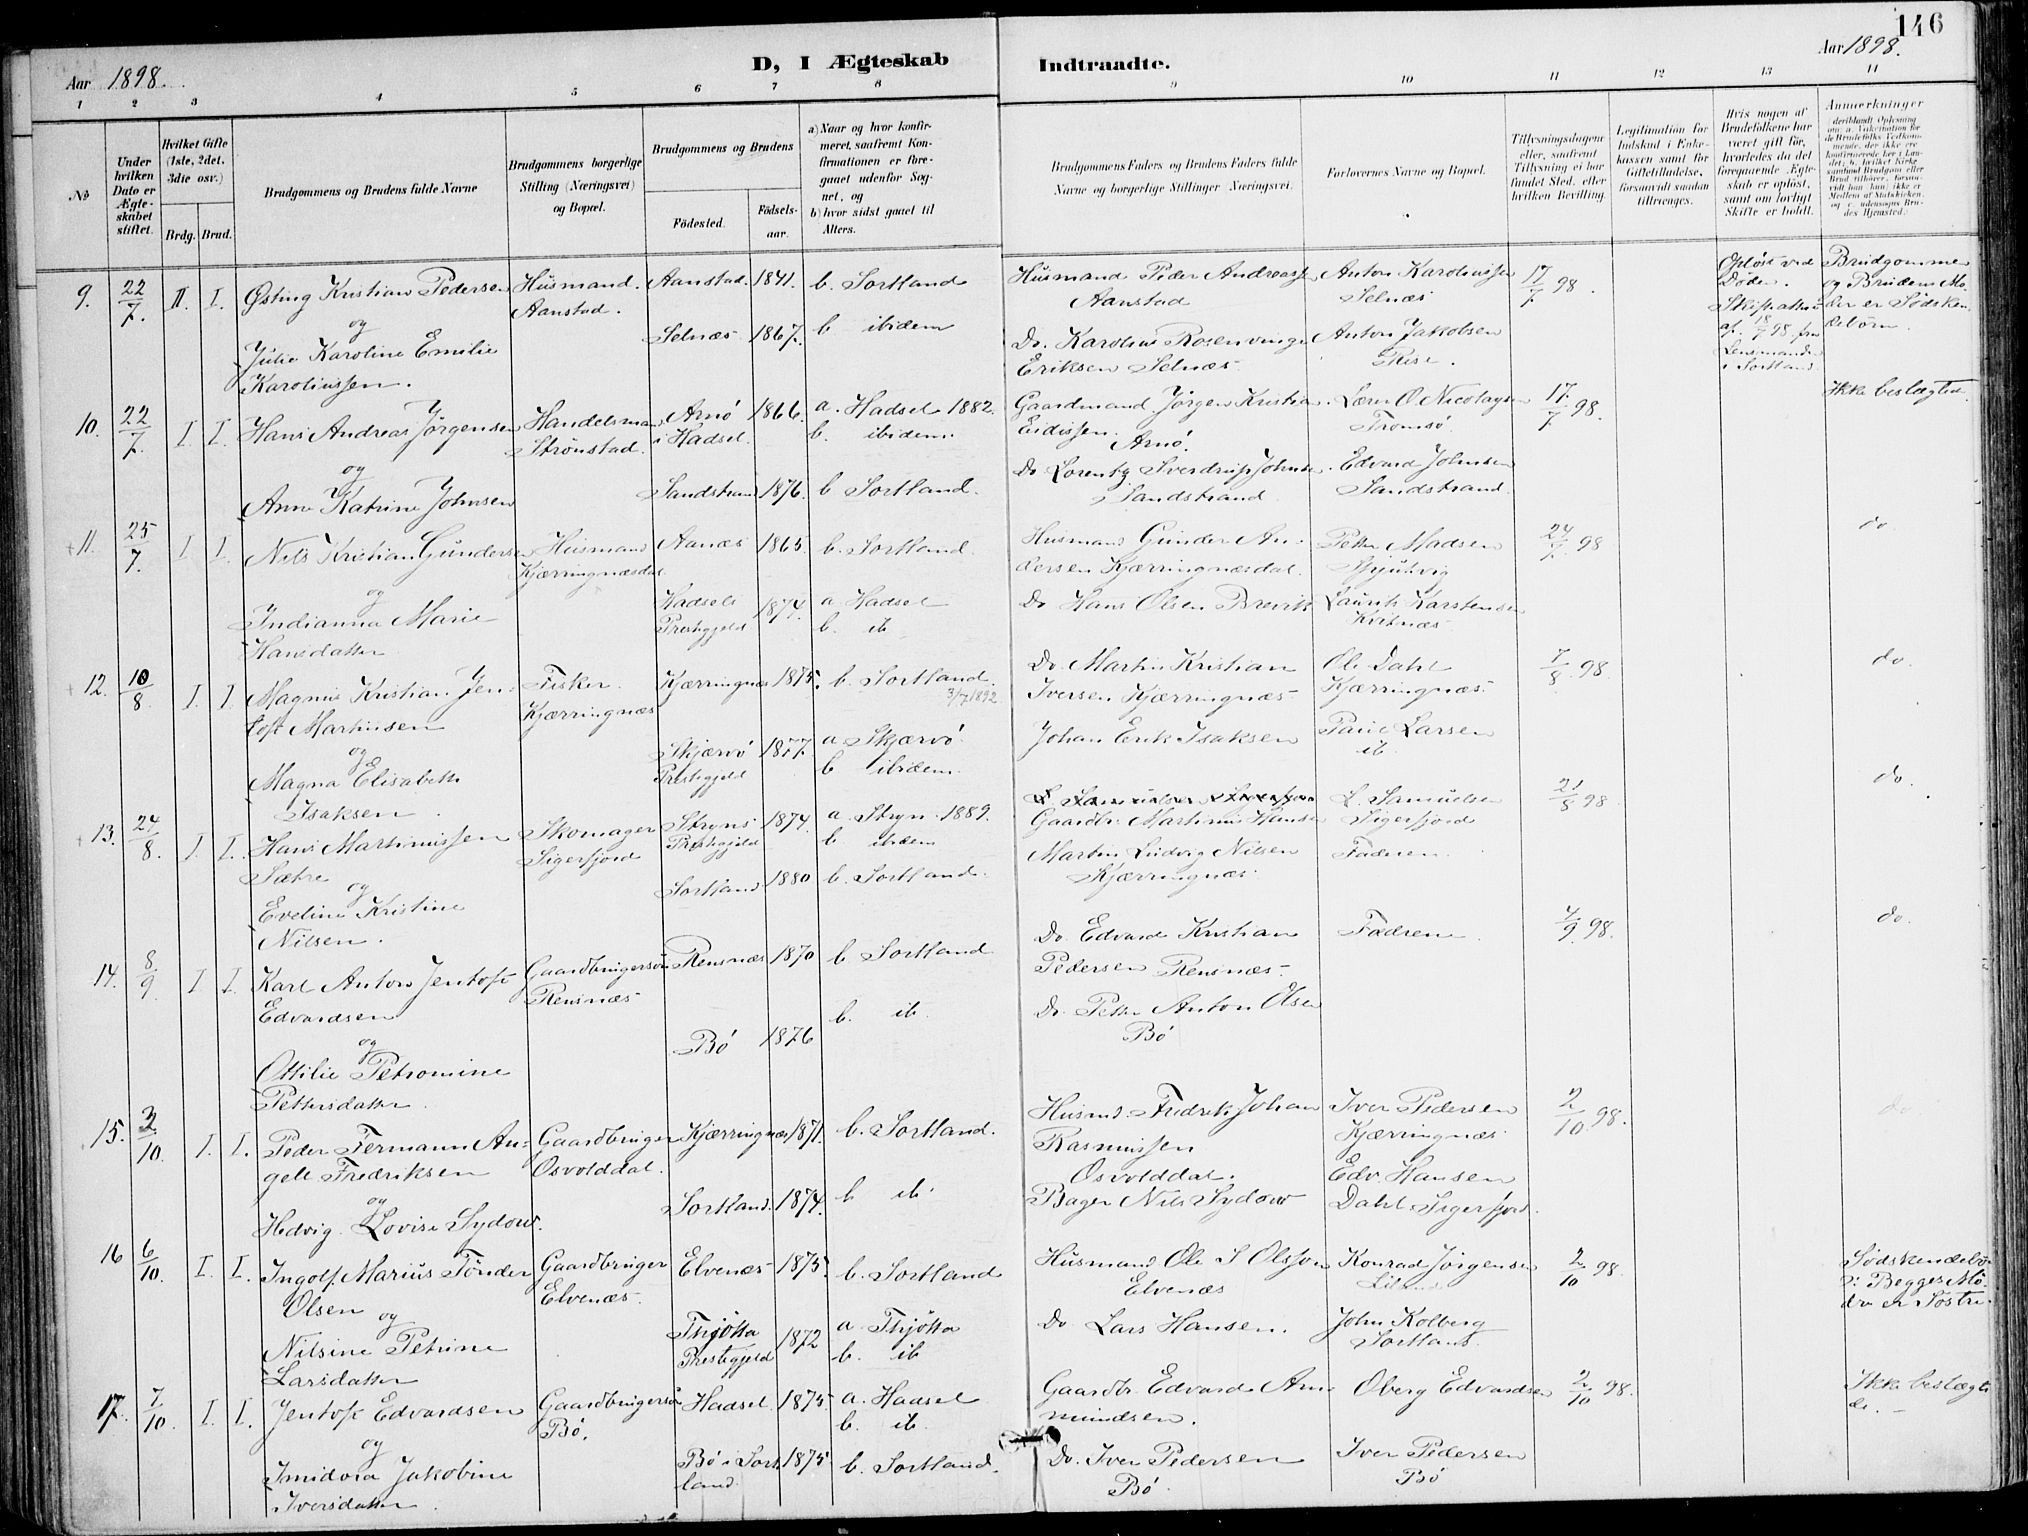 146
Aar 1898.
D, I Ægteskab Indtraadte.
Aar 1898.
1 2 3 4 5 6 7 8 9 10 11 12 13 14
№
Under hvilken Dato er Ægteskabet stiftet.
Hvilket Gifte (1ste, 2det, 3die osv.)
Brdg. Brud.
Brudgommens og Brudens fulde Navne
Brudgommens borgerlige Stilling (Næringsvei) og Bopæl.
Brudgommens og Brudens
Fødested.
Fødsels-aar.
a) Naar og hvor konfirmeret, saafremt Konfirmationen er foregaaet udenfor Sognet, og
b) hvor sidst gaaet til Alters.
Brudgommens Faders og Brudens Faders fulde Navne og borgerlige Stillinger Næringsvei.
Forlovernes Navne og Bopæl.
Tillysningsdagene eller, saafremt Tillysning ei har fundet Sted, efter hvilken Bevilling.
Legitimation for Indskud i Enkekassen samt for Giftetilladelse, forsaavidt saadan tiltrænges.
Hvis nogen af Brudefolkene har været gift før, hvorledes da det foregaaende Ægteskab er opløst, samt om lovligt Skifte er holdt.
Anmerkninger
9. 22/7. II. I. Østing Kristian Pedersen
og
Julie Karoline Emilie
Karoliussen.
Husmand.
Aanstad.
Aanstad. 1841. b. Sortland
Selnæs 1867. b ibidem
Husmand Peder Andreas
Aanstad
Do. Karolius Rosenvinge
Eriksen Selnæs
Anton Karoliussen
Selnæs
Anton Jakobsen
Rise.
17/7 98.
Opløst ved
Døden.
Skifteattest
af 18/7 98 fra
Lensmanden
i Sortland
Brudgommen
og Brudens Mo-
der er Sødsken-
debørn.
10. 22/7. I I. Hans Andreas Jørgensen
og
Anne Katrine Johnsen
Handelsmand
Strønstad.
Arnø
i Hadsel.
1866. a. Hadsel 1882.
b. ibidem.
Sandstrand 1876. b Sortland.
Gaardmand Jørgen Kristian
Eidissen.
Arnø.
Do Lorentz Sverdrup Johnsen
Sandstrand
Lærer O Nicolaysen
Tromsø.
Edvard Johnsen
Sandstrand.
17/7 98.
Ikke beslægtede.
11. 25/7. I I. Nils Kristian Gundersen
og
Indianna Marie
Hansdatter
Husmand
Kjærringnesdal.
Aanæs 1865. b. Sortland.
Hadsels
Prestegjeld
1874. a Hadsel
b. ib
Husmand Gunder An-
dersen Kjærringnæsdal.
Do Hans Olsen Breivik
Petter Madsen
Laurits Karstensen
Kvitnæs
24/7 98
do
12. 10/8. I. I Magnus Kristian Jen-
toft Martinsen
og
Magna Elisabeth
Isaksen
Fisker.
Kjærringnæs
Kjærringnæs 1875. b. Sortland.
3/7 1892
Skjærvø
Prestegjeld
1877. a Skjærvø
b ibidem.
Do. Martin Kristian
Iversen Kjærringnæs
Johan Erik Isaksen
Ole Dahl
Kjærringnæs.
Paul Larsen
ib
7/8 98.
do.
13. 24/8. I. I. Hans Martinussen
Sætre
og
Eveline Kristine
Nilsen.
Skomager
Sigerfjord
Stryns
Prestegjeld
1874. a. Stryn 1889.
b ibidem
Sortland 1880 b. Sortland.
Gaardbr. Martinus Hansen
Martin Ludvig Nilsen
Kjærringnæs.
L. Samuelsen
Sigerfjord
Faderen.
21/8 98
do.
14. 8/9 I I. Karl Anton Jentoft
Edvardsen
og
Ottilie Petromine
Pettersdatter.
Gaardbrugersøn
Rensnæs
Rensnæs 1870 b Sortland
Bø 1876 b. ib.
Do. Edvard Kristian
Pedersen Rensnæs.
Do. Petter Anton Olsen
Bø
Fædrene.
4/9. 98.
do.
15. 3/10. I. I. Peder Fermann An-
gell Fredriksen
og
Hedvig Lovise Sydow.
Gaardbruger
Osvolddal.
Kjærringnæs 1871. b. Sortland.
Sortland. 1874. b ib.
Husmd. Fredrik Johan
Rasmussen
Osvolddal.
Bager Nils Sydow
Iver Pedersen
Kjærringnæs
Edv. Hansen
Dahl Sigerfjord.
2/10 98.
do
16 6/10. I. I. Ingolf Marius Tønder
Olsen
og
Nilsine Petrine
Larsdatter
Gaardbruger
Elvenæs.
Elvenæs 1875. b. Sortland
Thjøtta
Prestegjeld
1872 a. Thjøtta
b. ib
Husmand Ole S Olsson
Elvenæs
Do Lars Hansen.
Konrad Jørgensen
John Kolberg
Sortland
2/10 98.
Sødskendebø
ɔ: Begges Mø-
dre er Søstre.
17. 7/10. I. I. Jentoft Edvardsen
og
Imidora Jakobine
Iversdatter.
Gaardbrugersøn
Bø.
Hadsel. 1875 a. Hadsel
b. ib.
Bø i Sort
land.
1875 b. Sortland.
Gaardbr. Edvard Am-
mundsen.
Do. Iver Pedersen
Bø.
Oberg Edvardsen
Iver Pedersen
Bø
2/10 98.
Ikke beslægte
de.